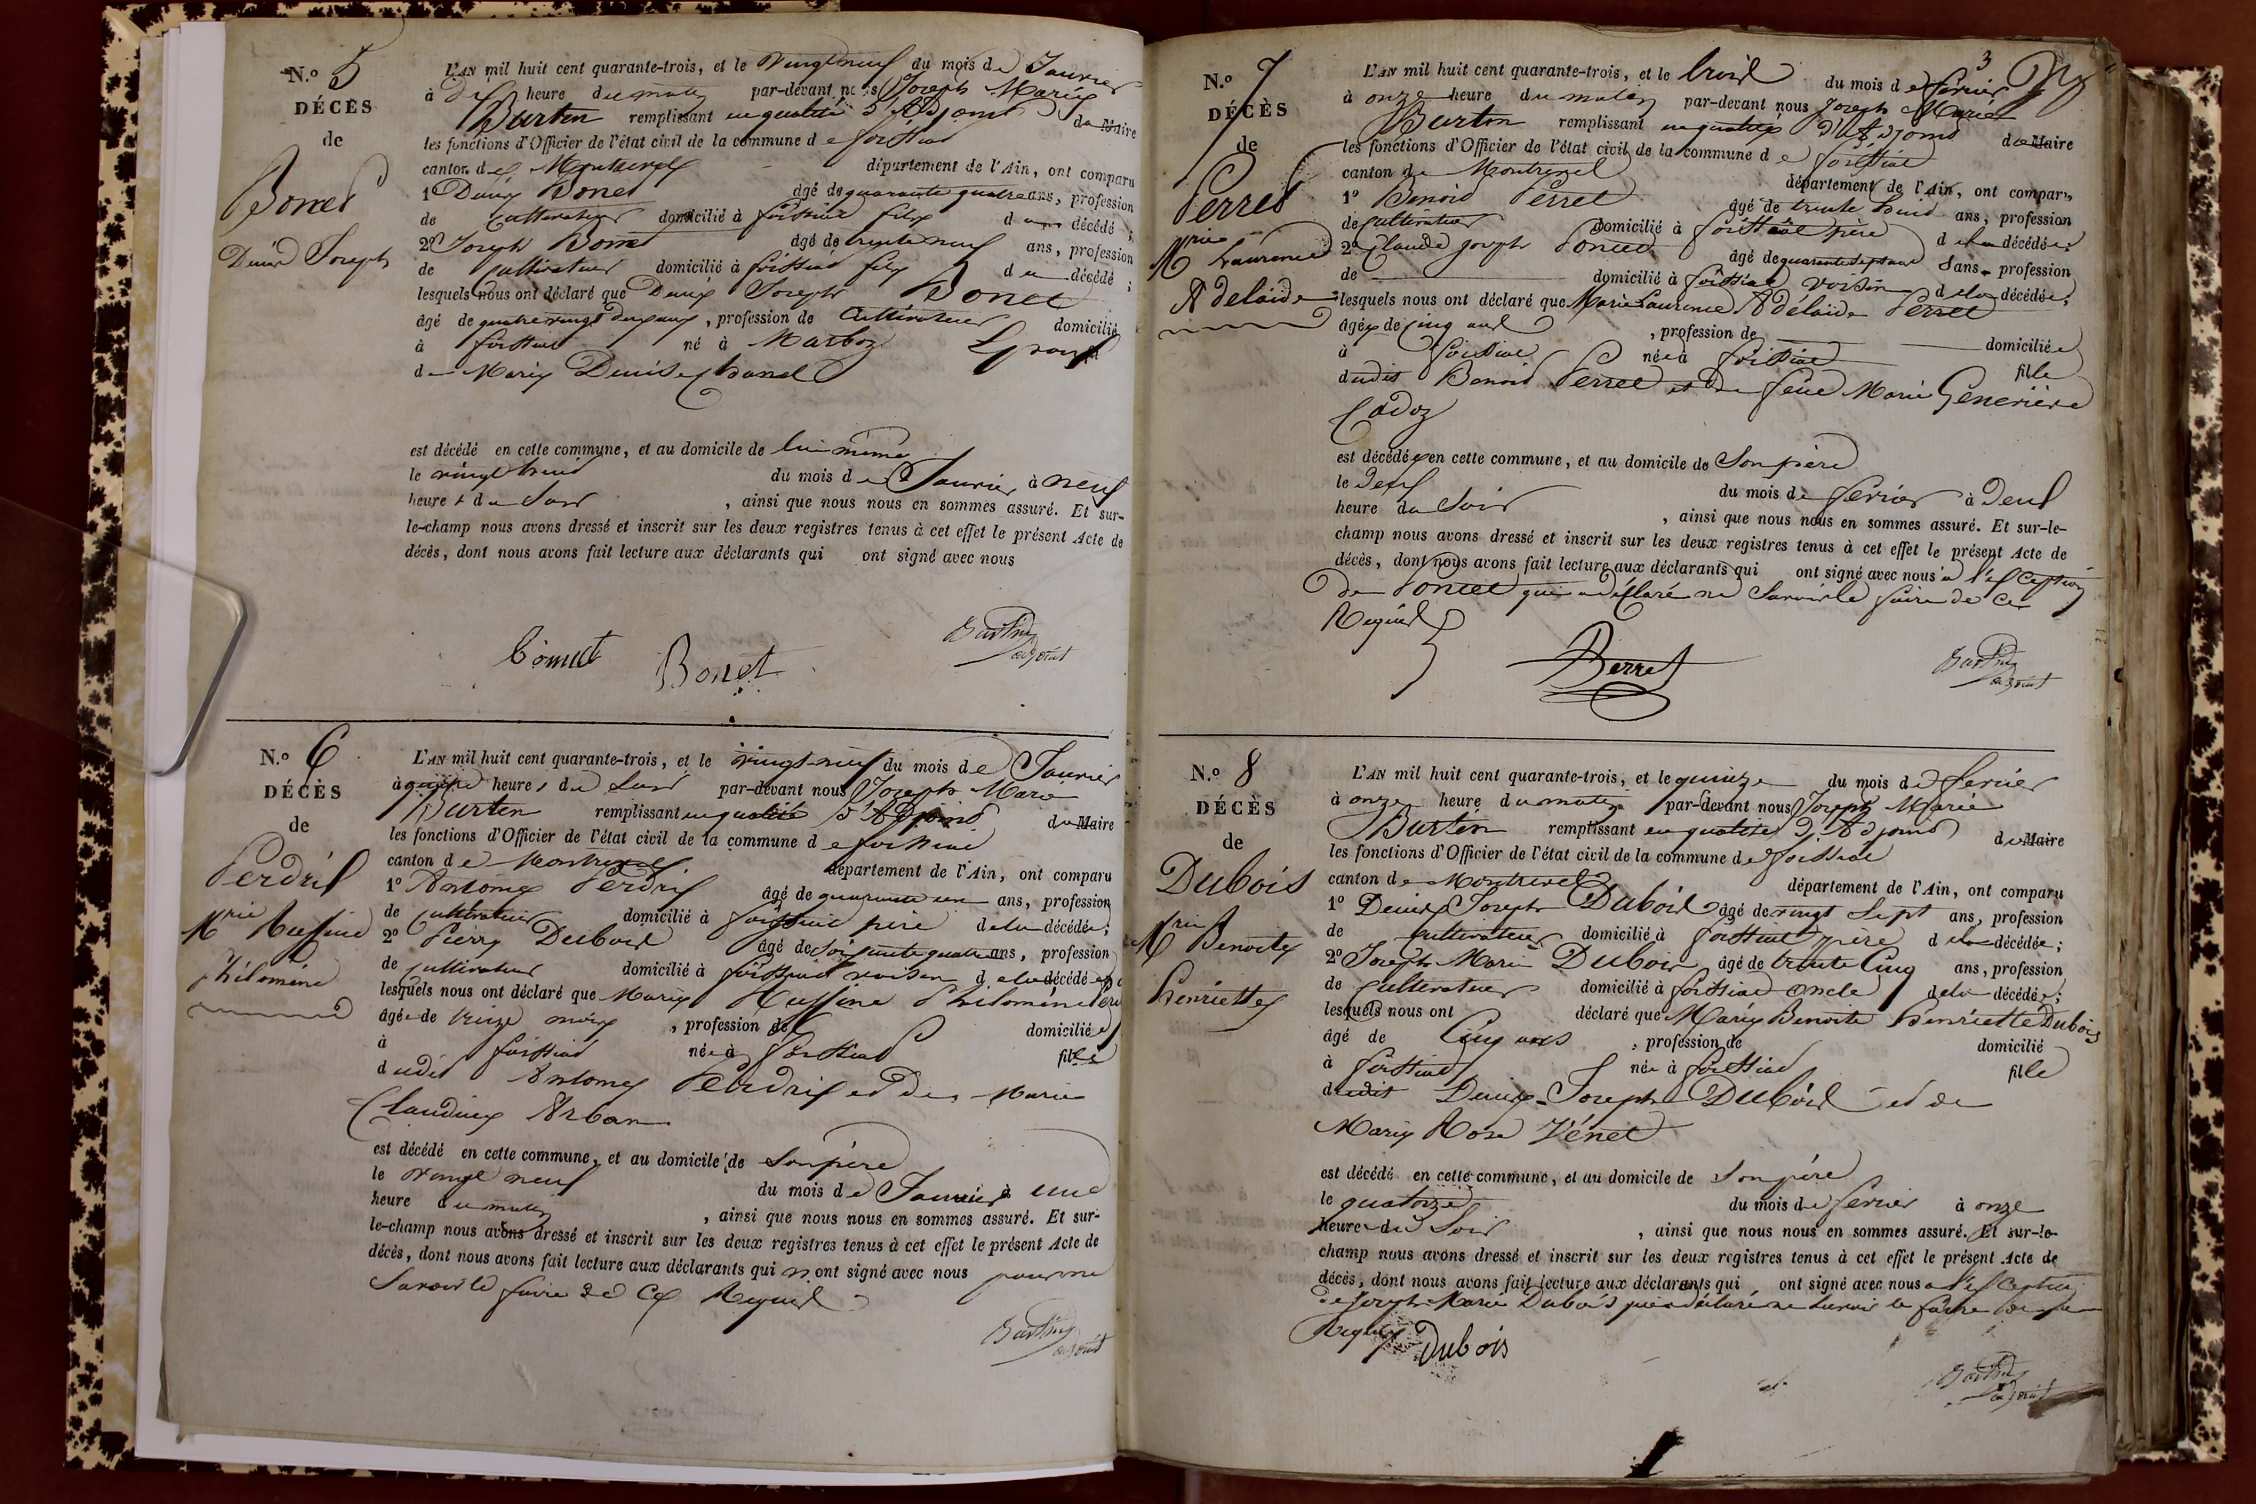 N.º 5
DÉCÈS
de
Bonet
Denis Joseph
L'AN mil huit cent quarante-trois, et le vingt neuf du mois de Janvier
à dix heure du matin par-devant nous Joseph Marie
Burtin remplissant en qualité d'Adjoint du Maire
les fonctions d'Officier de l'état civil de la commune de foissiat
canton de Montrevel département de l'Ain, ont comparu
1º Denis Bonet âgé de quarante quatre ans, profession
de cultivateur domicilié à foissiat fils du décédé ;
2º Joseph Bonet âgé de trente neuf ans, profession
de cultivateur domicilié à foissiat fils du décédé ;
lesquels nous ont déclaré que Denis Joseph Bonet
âgé de quatre vingt deux ans, profession de Cultivateur domicilié
à foissiat né à Marboz Epoux
de Marie Denise chanel
est décédé en cette commune, et au domicile de lui même
le vingt huit du mois de Janvier à neuf
heures du Soir, ainsi que nous nous en sommes assuré. Et sur-
le-champ nous avons dressé et inscrit sur les deux registres tenus à cet effet le présent Acte de
décès, dont nous avons fait lecture aux déclarants qui ont signé avec nous
Bonet Bonet Burtin
adjoint
N.º 6
DÉCÈS
de
Perdrix
Mrie
philomène
L'AN mil huit cent quarante-trois, et le vingt-neuf du mois de Janvier
à quatre heures du Soir par-devant nous Joseph Marie
Burtin remplissant en qualité d'Adjoint du Maire
les fonctions d'Officier de l'état civil de la commune de foissiat
canton de Montrevel département de l'Ain, ont comparu
1º Antoine Perdrix âgé de quarante un ans, profession
de cultivateur domicilié à foissiat père de la décédée ;
2º Pierre Dubois âgé de soixante quatre ans, profession
de cultivateur domicilié à foissiat voisin de la décédée
lesquels nous ont déclaré que Marie philomène
âgée de treize mois, profession de domiciliée
à foissiat née à foissiat fille
dudit Antoine Perdrix et de Marie
Claudine Arban
est décédé en cette commune, et au domicile de son père
le vingt neuf du mois de Janvier à une
heure du matin, ainsi que nous nous en sommes assuré. Et sur-
le-champ nous avons dressé et inscrit sur les deux registres tenus à cet effet le présent Acte de
décès, dont nous avons fait lecture aux déclarants qui n'ont signé avec nous pour ne
Savoir le faire de ce Requis
Burtin
adjoint
3
N.º 7
DÉCÈS
de
Perret
Mrie Laurence
Adelaide
L'AN mil huit cent quarante-trois, et le trois du mois de fevrier
à onze heure du matin par-devant nous Joseph Marie
Burtin remplissant en qualité d'Adjoint du Maire
les fonctions d'Officier de l'état civil de la commune de foissiat
canton de Montrevel département de l'Ain, ont comparu
1º Benoit Perret âgé de trente huit ans, profession
de cultivateur domicilié à foissiat père de la décédée ;
2º Claude joseph Poncet âgé de quarante sept ans Sans profession
de domicilié à foissiat voisin de la décédée ;
lesquels nous ont déclaré que Marie Laurence Adélaide Perret
âgée de cinq ans, profession de domiciliée
à foissiat née à foissiat fille
dudit Benoit Perret et de feue Marie Geneviève
Cadoz
est décédée en cette commune, et au domicile de Son père
le deux du mois de fevrier à deux
heure du Soir, ainsi que nous nous en sommes assuré. Et sur-le-
champ nous avons dressé et inscrit sur les deux registres tenus à cet effet le présent Acte de
décès, dont nous avons fait lecture aux déclarants qui ont signé avec nous à l'exception
de Poncet qui a déclaré ne Savoir le faire de ce
Requis
Perret Burtin
adjoint
N.º 8
DÉCÈS
de
Dubois
Mrie Benoite
henriette
L'AN mil huit cent quarante-trois, et le quinze du mois de fevrier
à onze heure du matin par-devant nous Joseph Marie
Burtin remplissant en qualité d'Adjoint du Maire
les fonctions d'Officier de l'état civil de la commune de foissiat
canton de Montrevel département de l'Ain, ont comparu
1º Denis Joseph Dubois âgé de vingt Sept ans, profession
de cultivateur domicilié à foissiat père de la décédée ;
2º Joseph Marie Dubois âgé de trente Cinq ans, profession
de cultivateur domicilié à foissiat oncle de la décédée ;
lesquels nous ont déclaré que Marie Benoite henriette Dubois
âgé de Cinq ans, profession de domicilié
à foissiat née à foissiat fille
dudit Denis Joseph Dubois et de
Marie Rose Vénet
est décédé en cette commune, et au domicile de Son père
le quatorze du mois de fevrier à onze
heure du Soir, ainsi que nous nous en sommes assuré. Et sur-le-
champ nous avons dressé et inscrit sur les deux registres tenus à cet effet le présent Acte de
décès, dont nous avons fait lecture aux déclarants qui ont signé avec nous à l'exception
de Joseph Marie Dubois qui a déclaré ne savoir le faire de ce
Requis
Dubois Burtin
adjoint